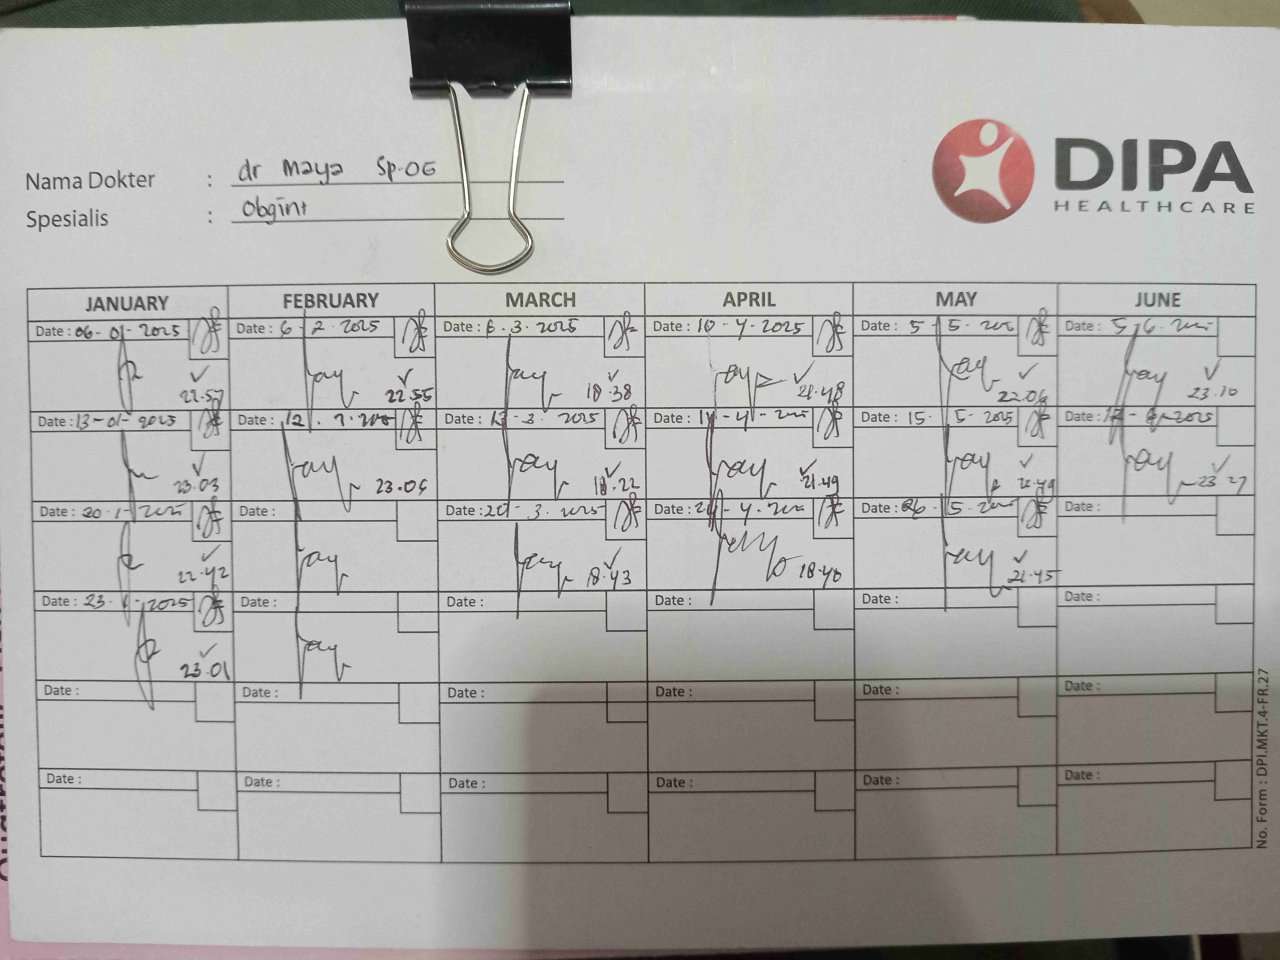 DIPA
HEALTHCARE
Nama Dokter : dr Maya Sp-OG
Spesialis : Obgini
JANUARY FEBRUARY MARCH APRIL MAY JUNE
Date : 06-01-2025 Date : 6-2-2025 Date : 6.3.2025 Date : 10-4-2025 Date : 5-5-2025 Date : 5-6-2025
22.57 22.55 18.38 21.48 22.04 23.10
Date : 13-01-2025 Date : 12. Date : 13-3.2025 Date : 14-4-2025 Date : 15-5-2025 Date : 2025
23.03 23.05 18.22 21.49 23.27
Date : 20-1-2025 Date : Date : 20-3.2025 Date : 4.2025 Date : 26.5.2025 Date :
22.42 18.43 18.40 21.45
Date : 23-1-2025 Date : Date : Date : Date : Date :
23.01
Date : Date : Date : Date : Date : Date :
Date : Date : Date : Date : Date : Date :
No. Form : DPI.MKT.4-FR.27